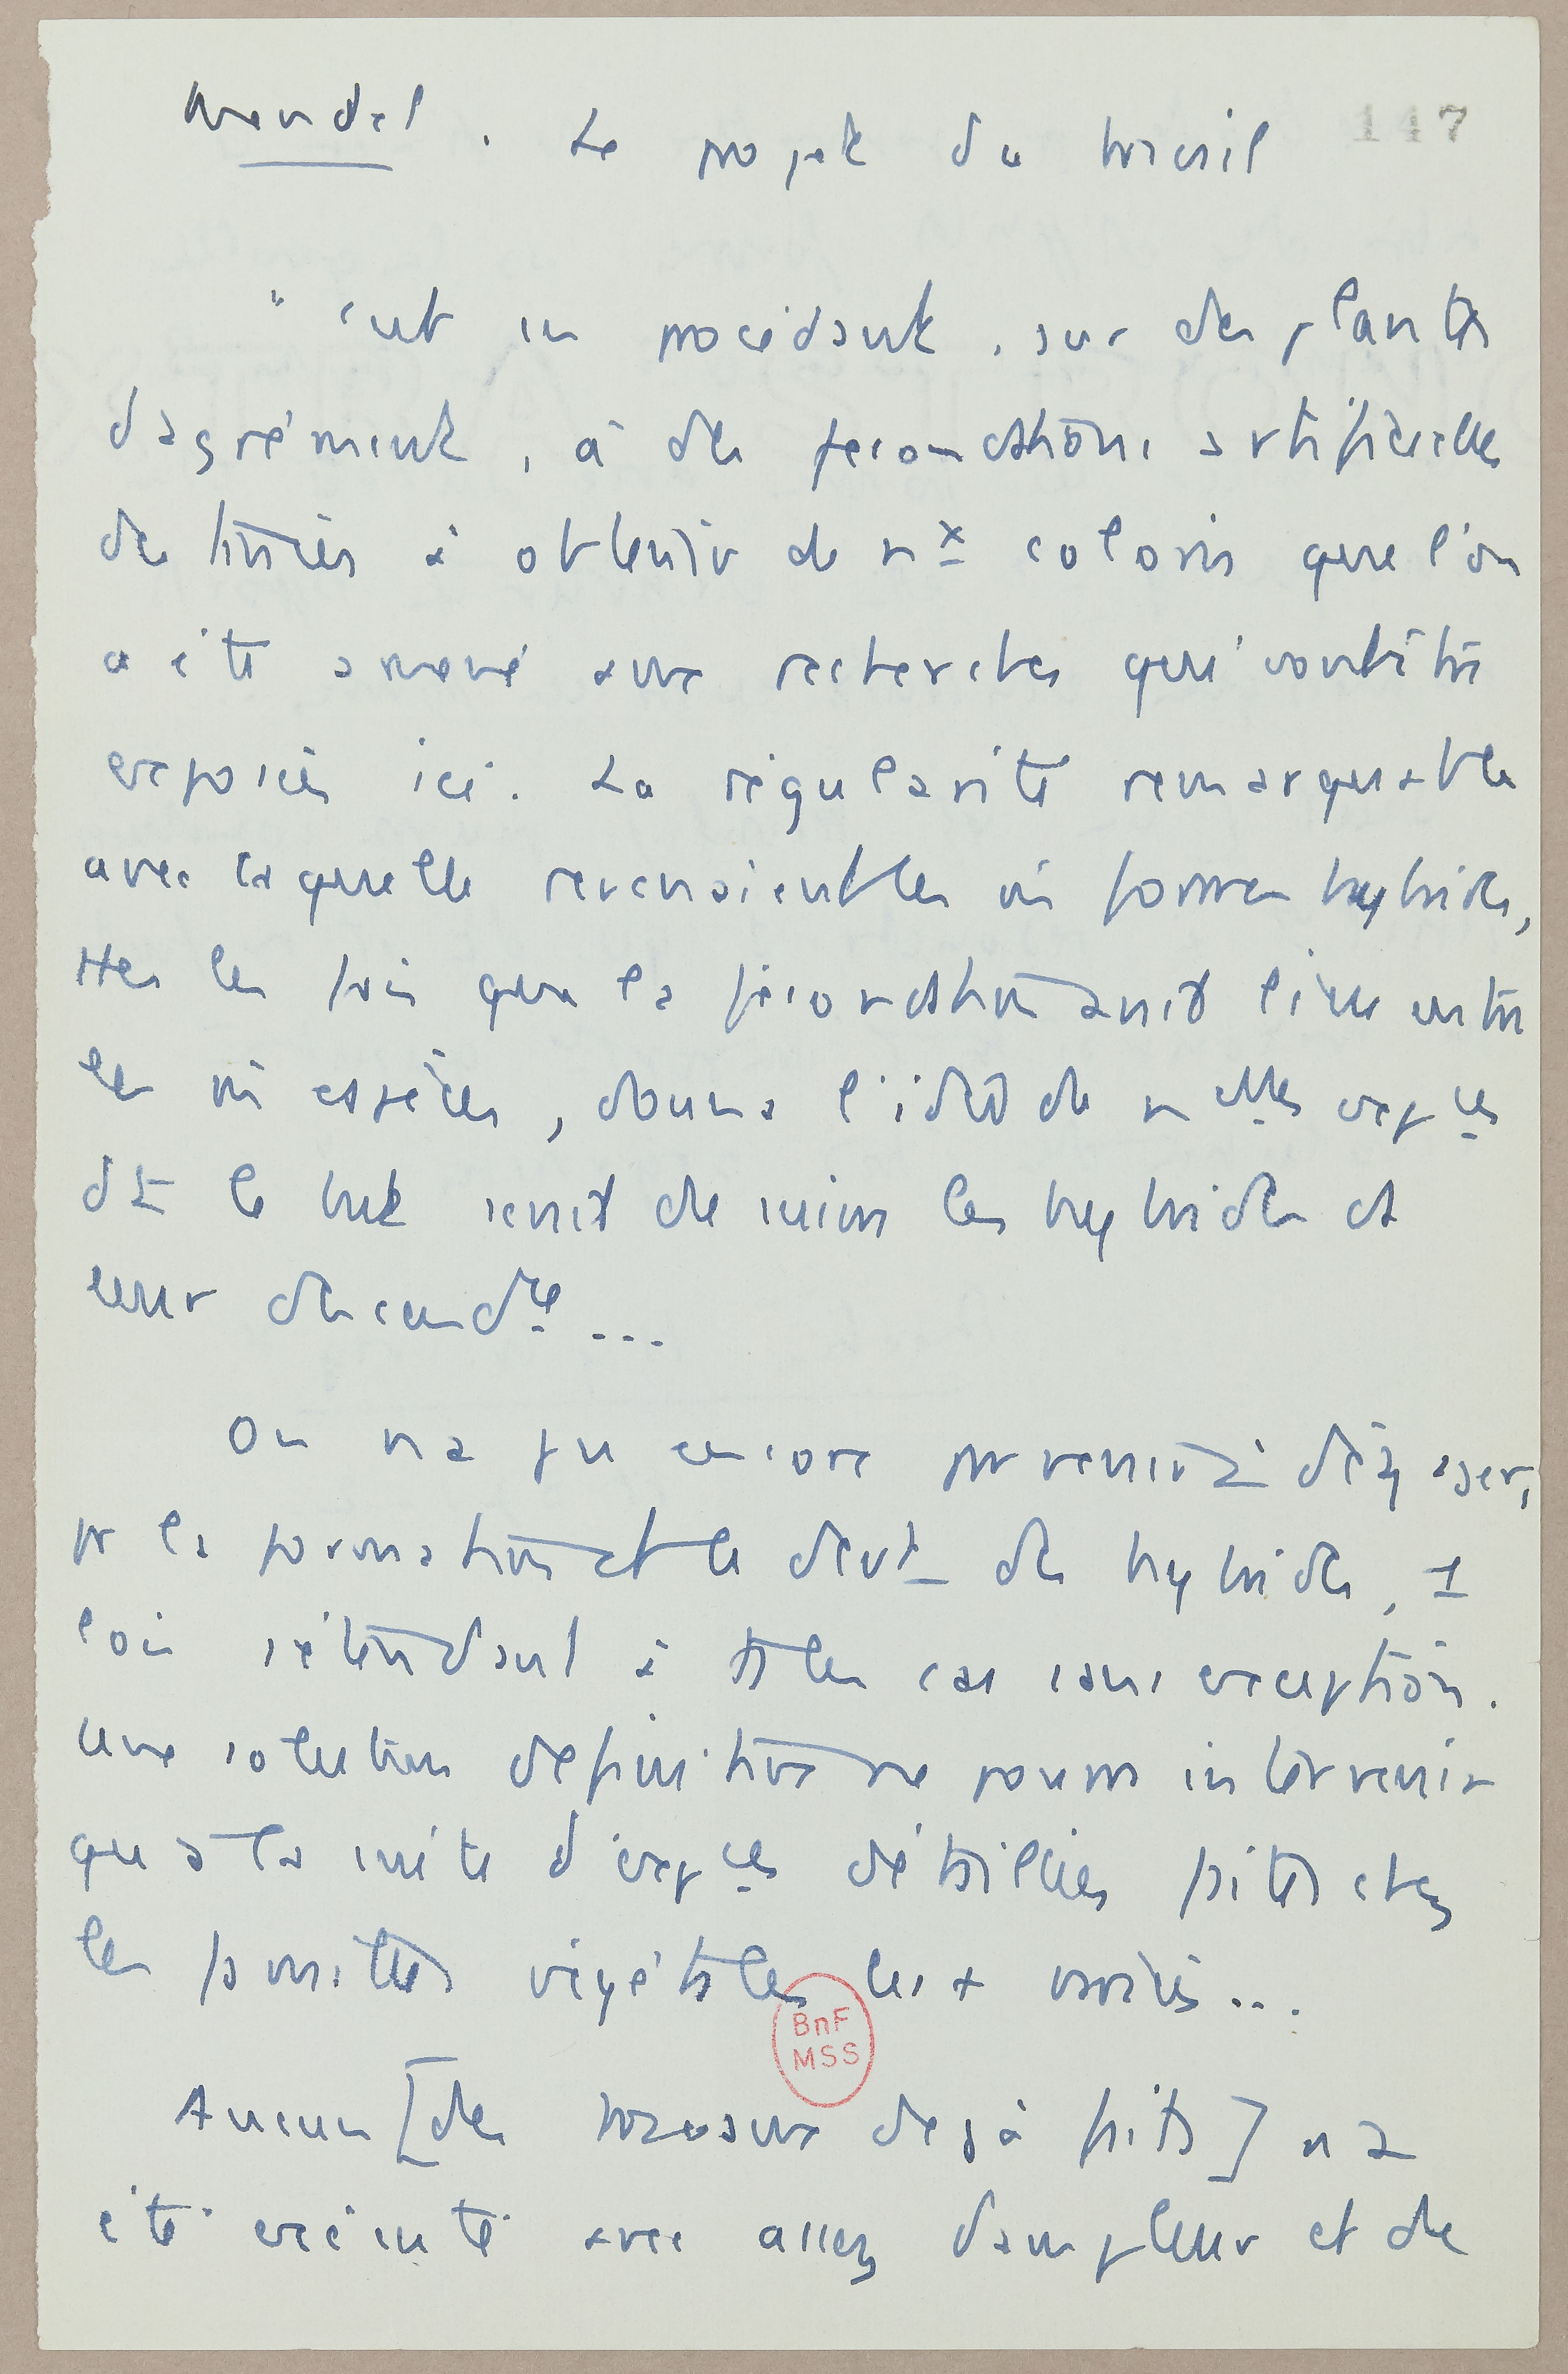 Mendel. Le projet du travail
147
"c'est en procédant, sur des plantes
d'agrément, à des fécondations artificielles
destinées à obtenir de nx coloris que l'on
a été amené aux recherches qui vont être
exposées ici. La régularité remarquable
avec laquelle revenaient les mês formes hybrides,
ttes les fois que la fécondation avait lieu entre
les mês espèces, donna l'idée de nelles expces
dt le but serait de suivre les hybrides et
leur descendce...
On n'a pu encore parvenir à dégager,
pr la formation et le devt des hybrides, 1
loi s'étendant à ts les cas sans exception.
Une solution définitive ne pourra intervenir
qu'à la suite d'expces détaillées faites chez
les familles végétales les + variées...
BnF
MSS
Aucun [des travaux déjà faits] n'a
été exécuté avec assez d'ampleur et de